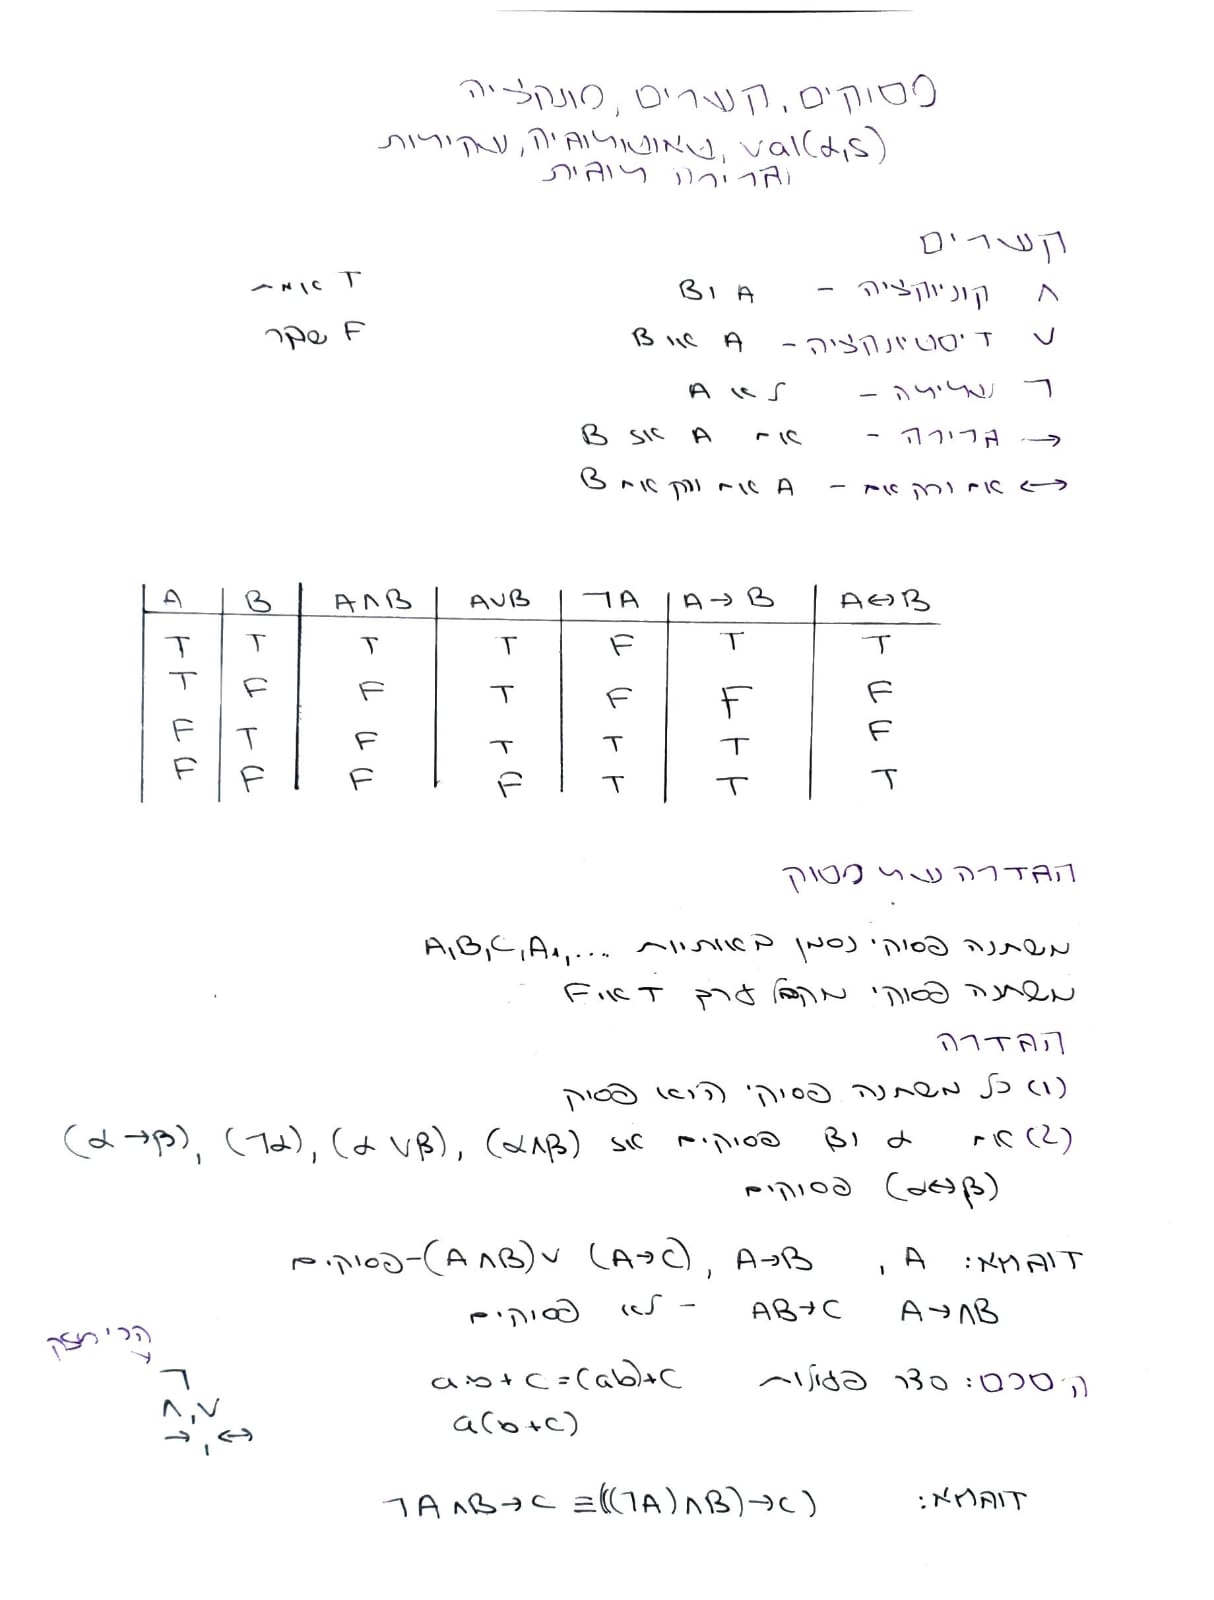 פסוקים, קשרים, פונקציה
val(α,s), טאוטולוגיה, שקילות
וגרירה לוגית
קשרים
∧ קוניונקציה - A וB
T אמת
∨ דיסיונקציה - A או B
F שקר
¬ שלילה - לא A
→ גרירה - אם A אז B
↔ אם ורק אם - A אם ורק אם B
A B A∧B A∨B ¬A A→B A↔B
T T T T F T T
T F F T F F F
F T F T T T F
F F F F T T T
הגדרה של פסוק
משתנה פסוקי נסמן באותיות A,B,C,A₁,...
משתנה פסוקי מקבל ערך T או F
הגדרה
(1) כל משתנה פסוקי הוא פסוק
(2) אם α וβ פסוקים אז (α∧β), (α∨β), (¬α), (α→β),
(α↔β) פסוקים
דוגמא: A, A→B, (A∧B)∨(A→C) - פסוקים
A→∧B AB→C - לא פסוקים
הכי חזק
¬
∧,∨
→,↔
הסכם: סדר פעולות a·b+c=(ab)+c
a(b+c)
דוגמא: ¬A∧B→C ≡(((¬A)∧B)→C)